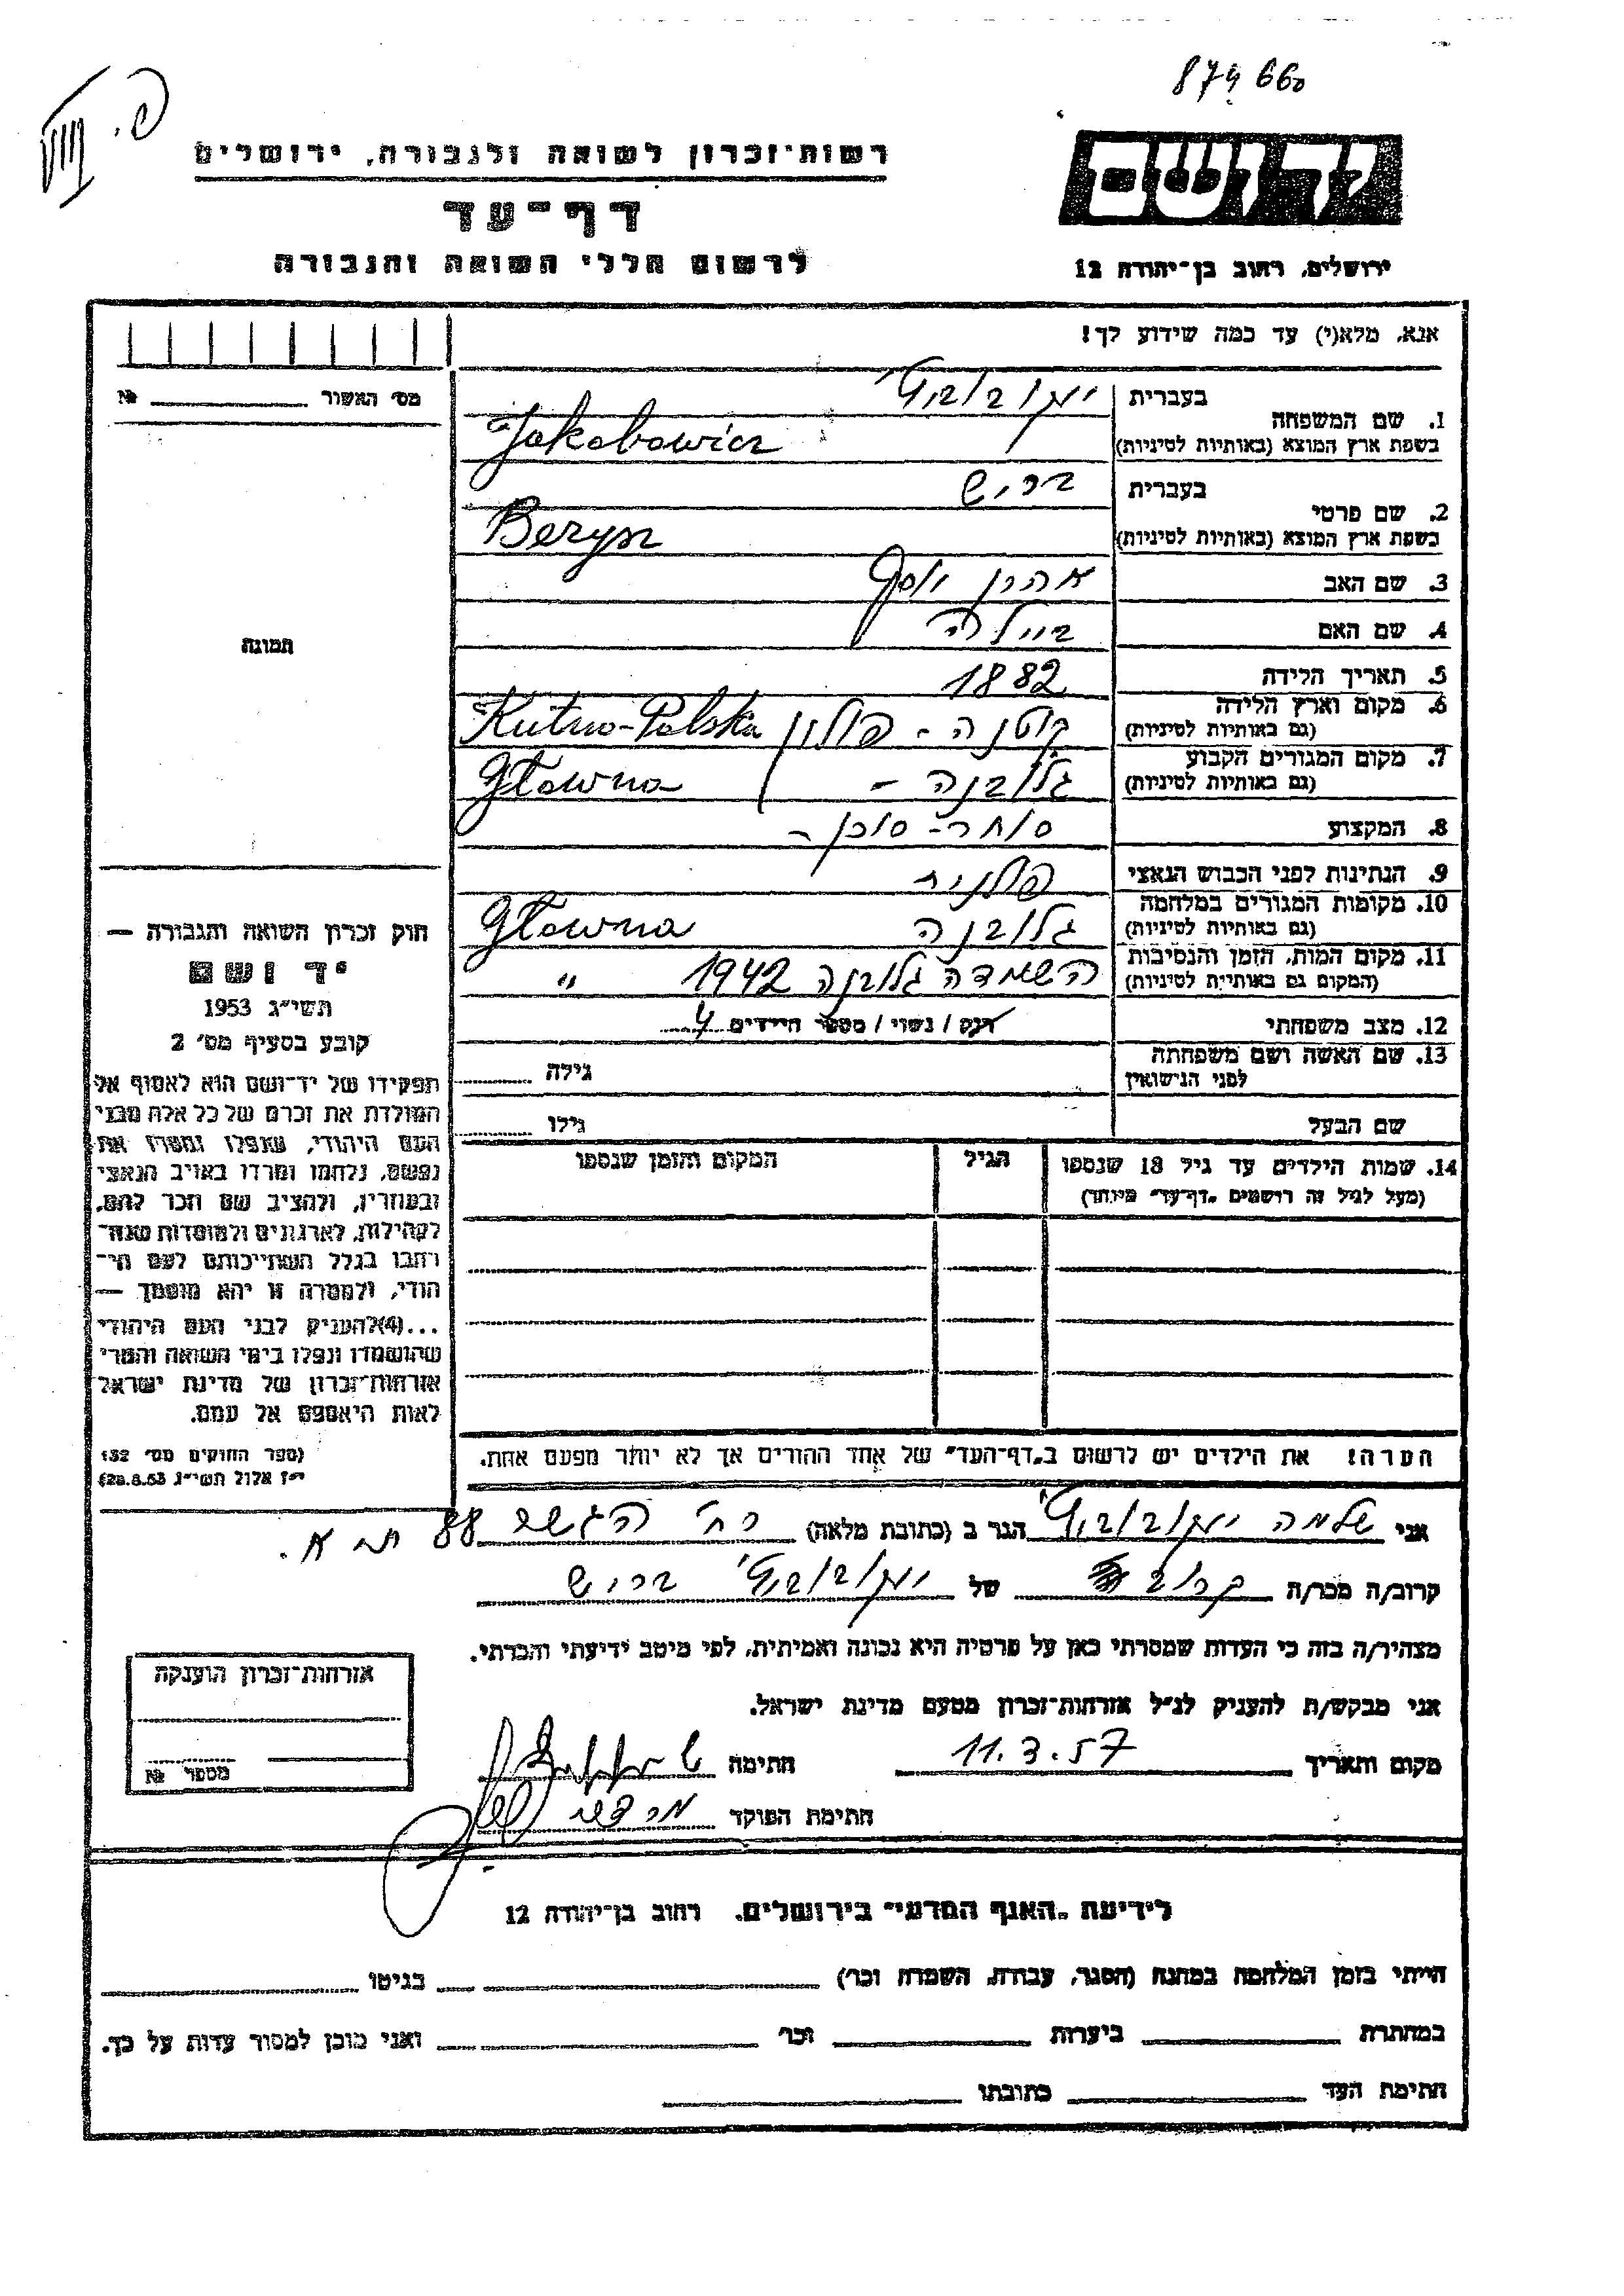 874660
פ.
רשות-זכרון לשואה ולגבורה, ירושלים
דף-עד
לרשום חללי השואה והגבורה
יד ושם
ירושלים, רחוב בן-יהודה 12
אנא, מלא(י) עד כמה שידוע לך!
מס' האשור № ______
תמונה
1. שם המשפחה בעברית יעקובוביץ'
בשפת ארץ המוצא (באותיות לטיניות) Jakobowicz
2. שם פרטי בעברית בריש
בשפת ארץ המוצא (באותיות לטיניות) Berysz
3. שם האב אהרן יוסף
4. שם האם ביילה
5. תאריך הלידה 1882
6. מקום וארץ הלידה (גם באותיות לטיניות) קוטנה - פולין Kutno-Polska
7. מקום המגורים הקבוע (גם באותיות לטיניות) גלובנה - Głowna
8. המקצוע סוחר - סוכן -
9. הנתינות לפני הכבוש הנאצי פולנית
10. מקומות המגורים במלחמה (גם באותיות לטיניות) גלובנה Głowna
11. מקום המות, הזמן והנסיבות (המקום גם באותיות לטיניות) השמדה גלובנה 1942 "
12. מצב משפחתי רוק / נשוי / מספר הילדים 4
13. שם האשה ושם משפחתה לפני הנישואין גילה
שם הבעל גילו
14. שמות הילדים עד גיל 18 שנספו הגיל המקום והזמן שנספו
(מעל לגיל זה רושמים "דף-עד" מיוחד)
הערה! את הילדים יש לרשום ב"דף-העד" של אחד ההורים אך לא יותר מפעם אחת.
חוק זכרון השואה והגבורה —
יד ושם
תשי"ג 1953
קובע בסעיף מס' 2
תפקידו של יד-ושם הוא לאסוף אל
המולדת את זכרם של כל אלה מבני
העם היהודי, שנפלו ומסרו את
נפשם, נלחמו ומרדו באויב הנאצי
ובעוזריו, ולהציב שם וזכר להם,
לקהילות, לארגונים ולמוסדות שנח-
רבו בגלל השתייכותם לעם הי-
הודי, ולמטרה זו יהא מוסמך —
...(4)להעניק לבני העם היהודי
שהושמדו ונפלו בימי השואה והמרי
אזרחות-זכרון של מדינת ישראל
לאות היאספם אל עמם.
(ספר החוקים מס' 132
י"ז אלול תשי"ג 28.8.53)
אני שלמה יעקובוביץ' הגר ב (כתובת מלאה) רח' הגשר 88 ת"א.
קרוב/ה מכר/ה קרוב של יעקובוביץ' בריש
מצהיר/ה בזה כי העדות שמסרתי כאן על פרטיה היא נכונה ואמיתית, לפי מיטב ידיעתי והכרתי.
אני מבקש/ת להעניק לנ"ל אזרחות-זכרון מטעם מדינת ישראל.
מקום ותאריך 11.3.57 חתימה
חתימת הפוקד
אזרחות-זכרון הוענקה
מספר №
לידיעת "האגף המדעי" בירושלים, רחוב בן-יהודה 12
הייתי בזמן המלחמה במחנה (הסגר, עבודה, השמדה וכו') בגיטו
במחתרת ביערות וכו' ואני מוכן למסור עדות על כך.
חתימת העד כתובתו